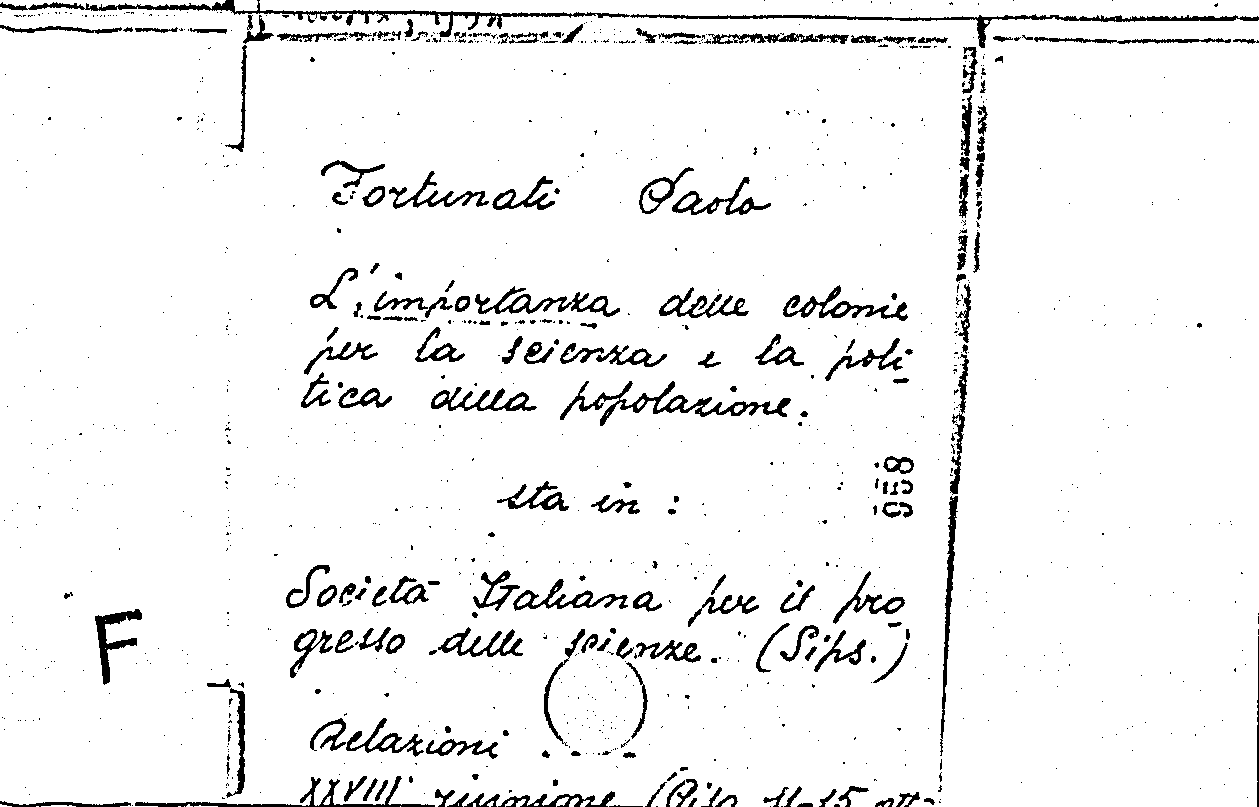 Fortunati Paolo
L'importanza delle colonie
per la scienza e la poli
tica della popolazione.
958
sta in :
Società Italiana per il pro
gresso delle scienze. (Sips.)
F
Relazioni . . . .
XXVIII riunione (Pisa 11-15 ott-